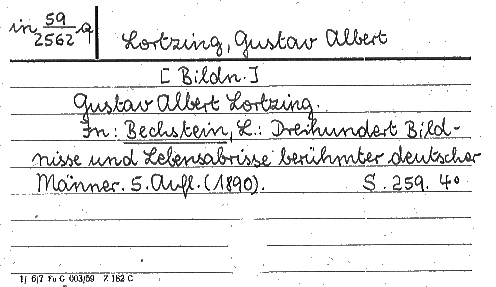 in 59/2562 a
Lortzing, Gustav Albert
[Bildn.]
Gustav Albert Lortzing.
In: Bechstein, L.: Dreihundert Bild-
nisse und Lebensabrisse berühmter deutscher
Männer. 5. Aufl. (1890). S. 259. 4°
1) 6/7 Fu G 003/59 Z 182 C